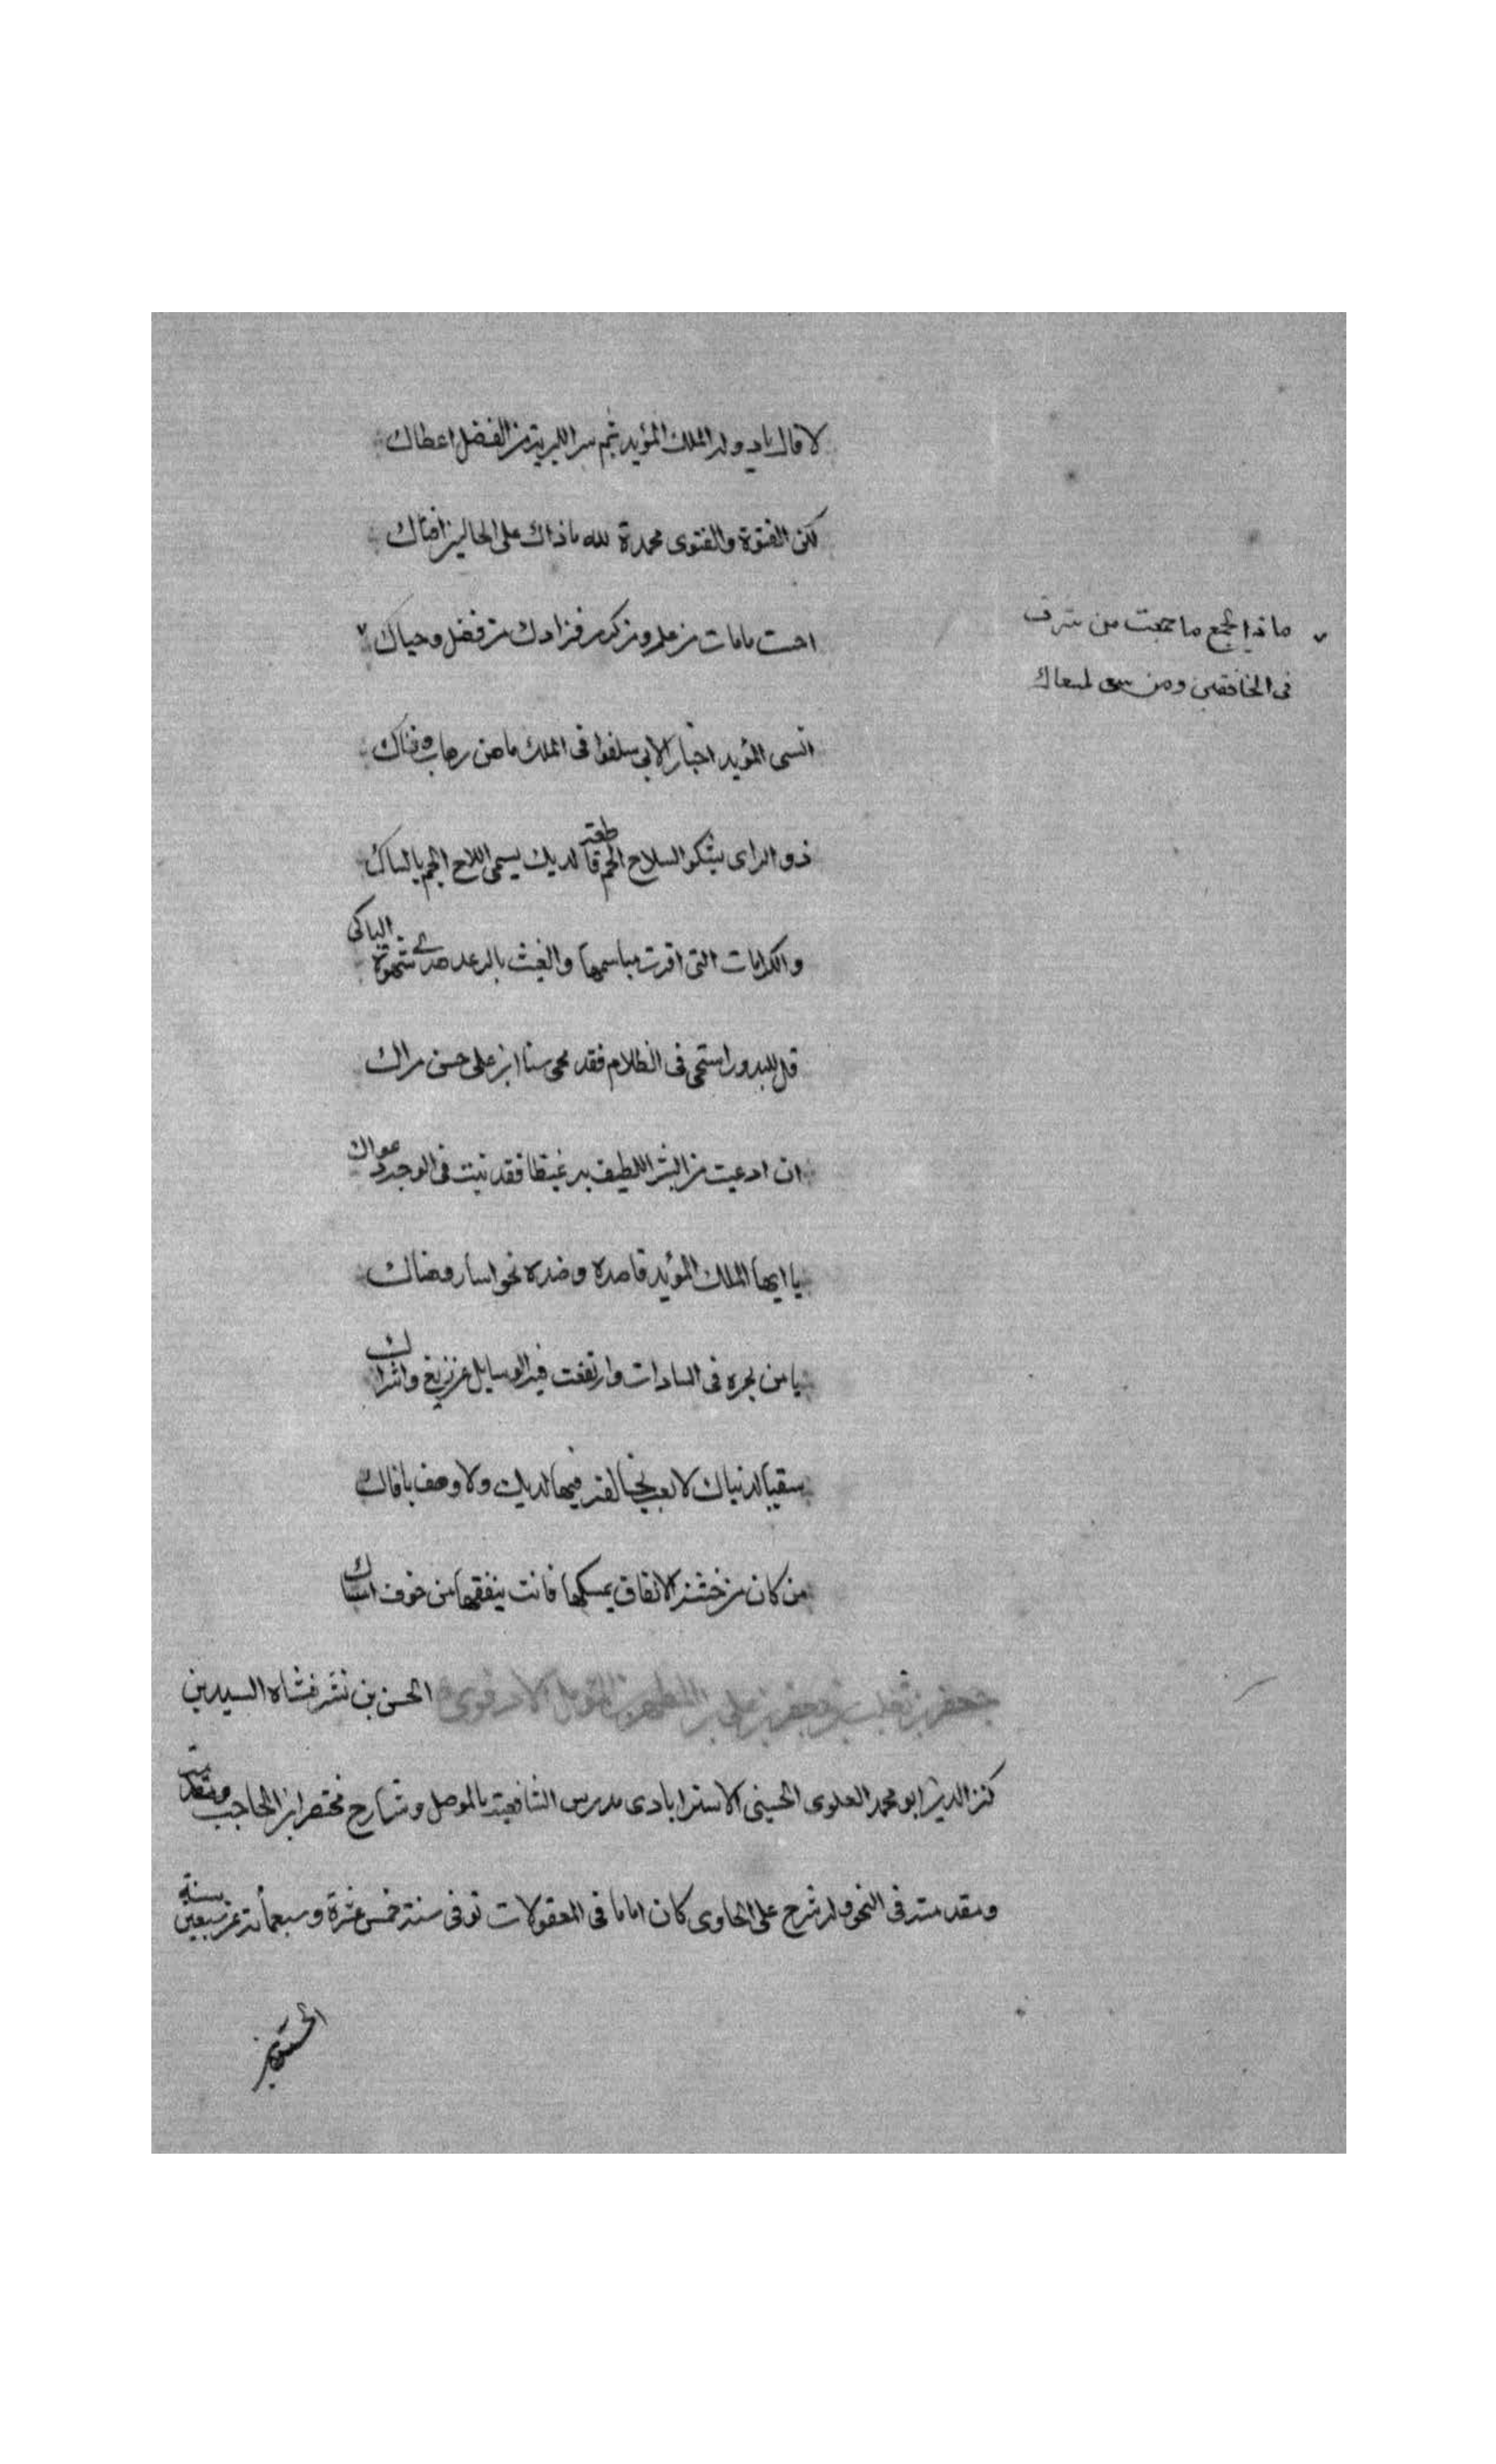 لا قال ياد ولد الملك المؤيد نجم سر البرية من الفضل اعطاك
لكن الفتوة والفتوى محمدة لله ماذاك على الحالين افتاك
احيت مامات من علم ومن كرم فزادك من فضل وحياك
ماذا الجمع ما جمعت من شرف
فى الخافقين ومن سعى لمسعاك
انسى المؤيد اخبار الالى سلفوا فى الملك ما من وهاب وفتاك
ذو الراى يشكو السلاح الجم قاطعة لديك يسمى السلاح الجم بالشاك
والكرامات التى افترت مباسمها والغيث بالرعد شهوة الباكى
قل للبدور استحى فى الظلام فقد محى سنا ابن على حسن مراك
ان ادعيت من البشر اللطيف به غيظا فقد نبت فى الوجد دعواك
يا ايها الملك المؤيد قاصده وضده نحو
يا من بحره فى السادات وارتفعت فيه الوسايل عن زيغ واشراك
سقيا لدنياك لا فيها لديك ولا وصف بافاك
من كان من خشية الانفاق يمسكها فانت ينفقها من خوف امساك
جعفر بن ثعلب بن جعفر بن على بن المطهر بن نوفل الادفوى الحسن بن شرفشاه السيد بن
كن الدين ابو محمد العلوى الحسينى الاسترابادى مدرس الشافعية بالموصل وشارح مختصر ابن الحاجب ومقدمته
ومقدمته فى النحو وله شرح على الحاوى كان اماما فى المعقولات توفى سنة خمس عشرة وسبعمائة عن سبعين سنة
الحسن بن